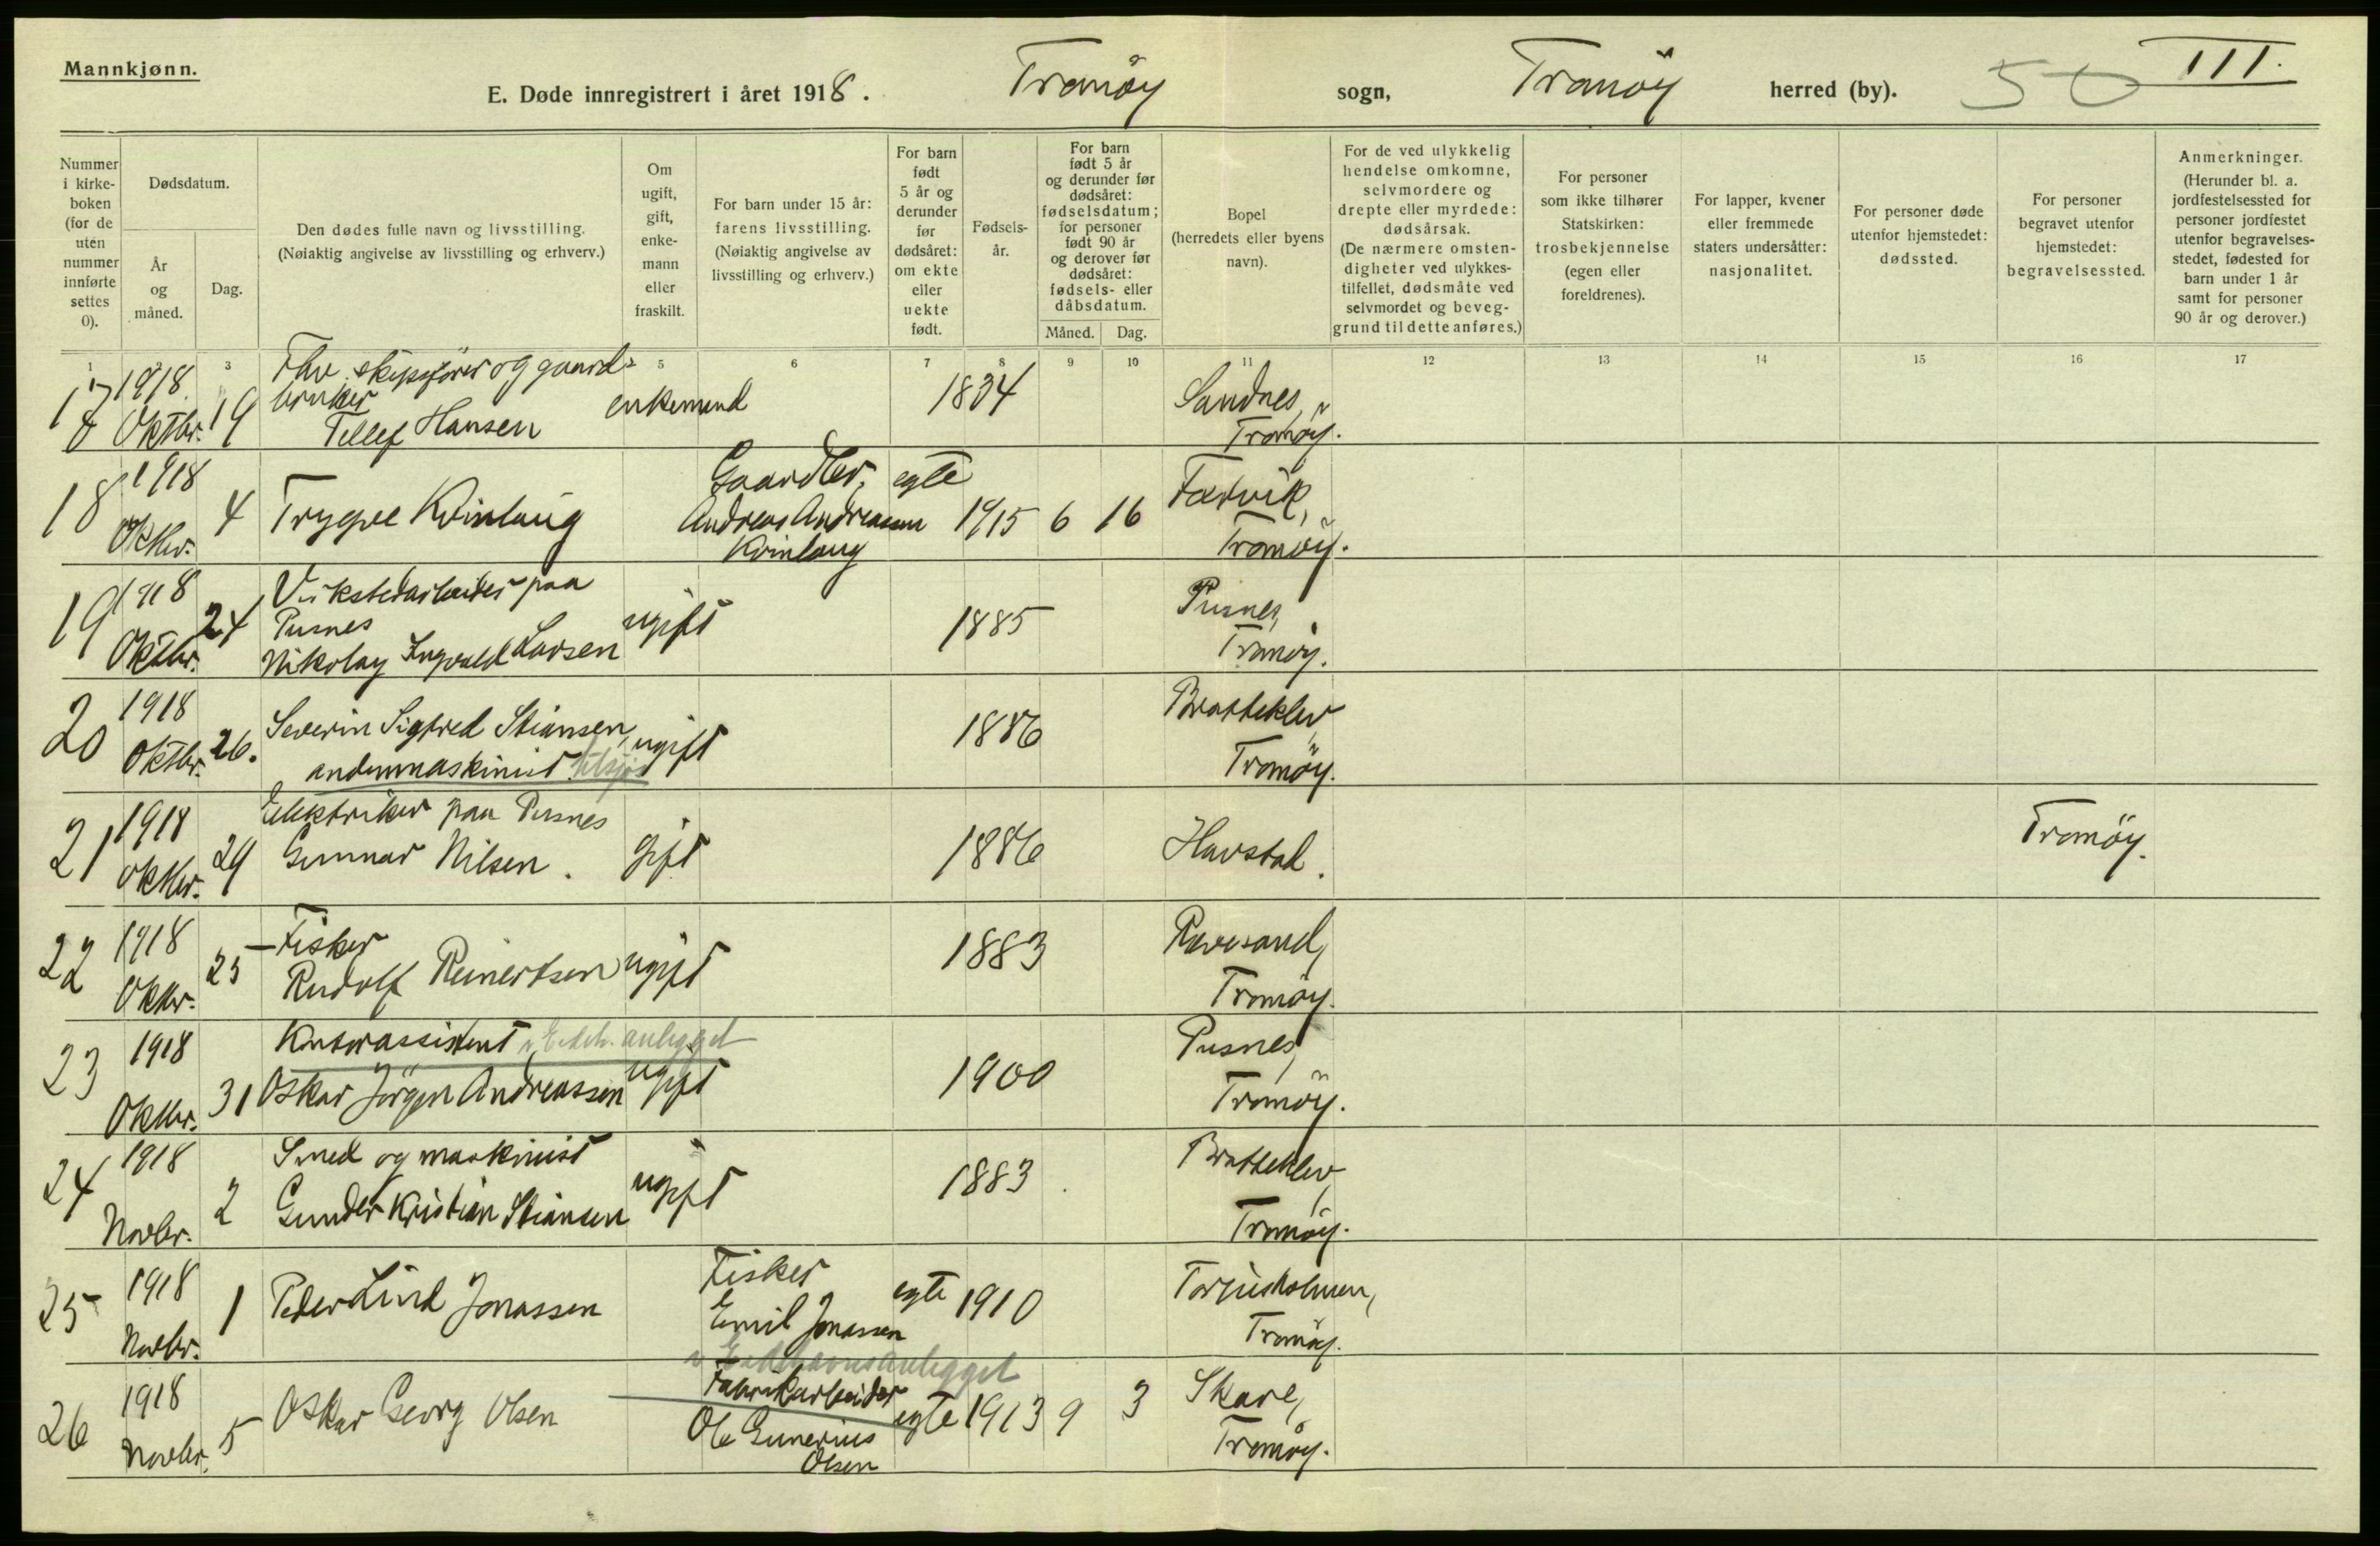 Mannkjønn.
E. Døde innregistrert i året 1918. Tromöy sogn, Tromöy herred (by). 50 III.
Nummer i kirke-boken (for de uten nummer innførte settes 0).
Dødsdatum.
År og måned.
Dag.
Den dødes fulle navn og livsstilling.
(Nøiaktig angivelse av livsstilling og erhverv.)
Om ugift, gift, enke-mann eller fraskilt.
For barn under 15 år: farens livsstilling. (Nøiaktig angivelse av livsstilling og erhverv.)
For barn født 5 år og derunder før dødsåret: om ekte eller uekte født.
Fødsels-år.
For barn født 5 år og derunder før dødsåret: fødselsdatum; for personer født 90 år og derover før dødsåret: fødsels- eller dåbsdatum.
Måned. Dag.
Bopel (herredets eller byens navn).
For de ved ulykkelig hendelse omkomne, selvmordere og drepte eller myrdede: dødsårsak. (De nærmere omsten-digheter ved ulykkes-tilfellet, dødsmåte ved selvmordet og beveg-grund til dette anføres.)
For personer som ikke tilhører Statskirken: trosbekjennelse (egen eller foreldrenes).
For lapper, kvener eller fremmede staters undersåtter: nasjonalitet.
For personer døde utenfor hjemstedet: dødssted.
For personer begravet utenfor hjemstedet: begravelsessted.
Anmerkninger. (Herunder bl. a. jordfestelsessted for personer jordfestet utenfor begravelses-stedet, fødested for barn under 1 år samt for personer 90 år og derover.)
1 3 5 6 7 8 9 10 11 12 13 14 15 16 17
17 1918 Oktbr. 19 Fhv. skipsfører og gaard-
bruker
Tellef Hansen enkemand 1834 Sandnes,
Tromöy.
18 1918 Oktbr. 4 Trygve Kvinlaug Gaardbr., egte
Andreas Andreassen 1915 6 16 Færvik,
Kvinlaug Tromöy.
19 1918 Oktbr. 24 Verkstedarbeider paa
Pusnes
Nikolay Ingvald Larsen ugift 1885 Pusnes,
Tromöy.
20 1918 Oktbr. 26. Severin Sigfred Stiansen,
andenmaskinist tilsjøs ugift 1886 Bratteklev,
Tromöy.
21 1918 Oktbr. 29 Elektriker paa Pusnes
Gunnar Nilsen. gift 1886 Havstad. Tromöy.
22 1918 Oktbr. 25 Fisker
Rudolf Reinertsen ugift 1883 Revesand,
Tromöy.
23 1918 Oktbr. 31 Kontorassistent anlegget
Oskar Jörgen Andreassen ugift 1900 Pusnes,
Tromöy.
24 1918 Novbr. 2 Smed og maskinist
Gunder Kristian Stiansen ugift 1883. Bratteklev,
Tromöy.
25 1918 Novbr. 1 Peder Lind Jonassen Fisker
Emil Jonassen egte 1910 Torjusholmen,
Tromöy.
26 1918 Novbr. 5 Oskar Georg Olsen anlegget
Fabrikarbeider
Ole Gunerius egte 1913 9 3 Skare,
Olsen Tromöy.